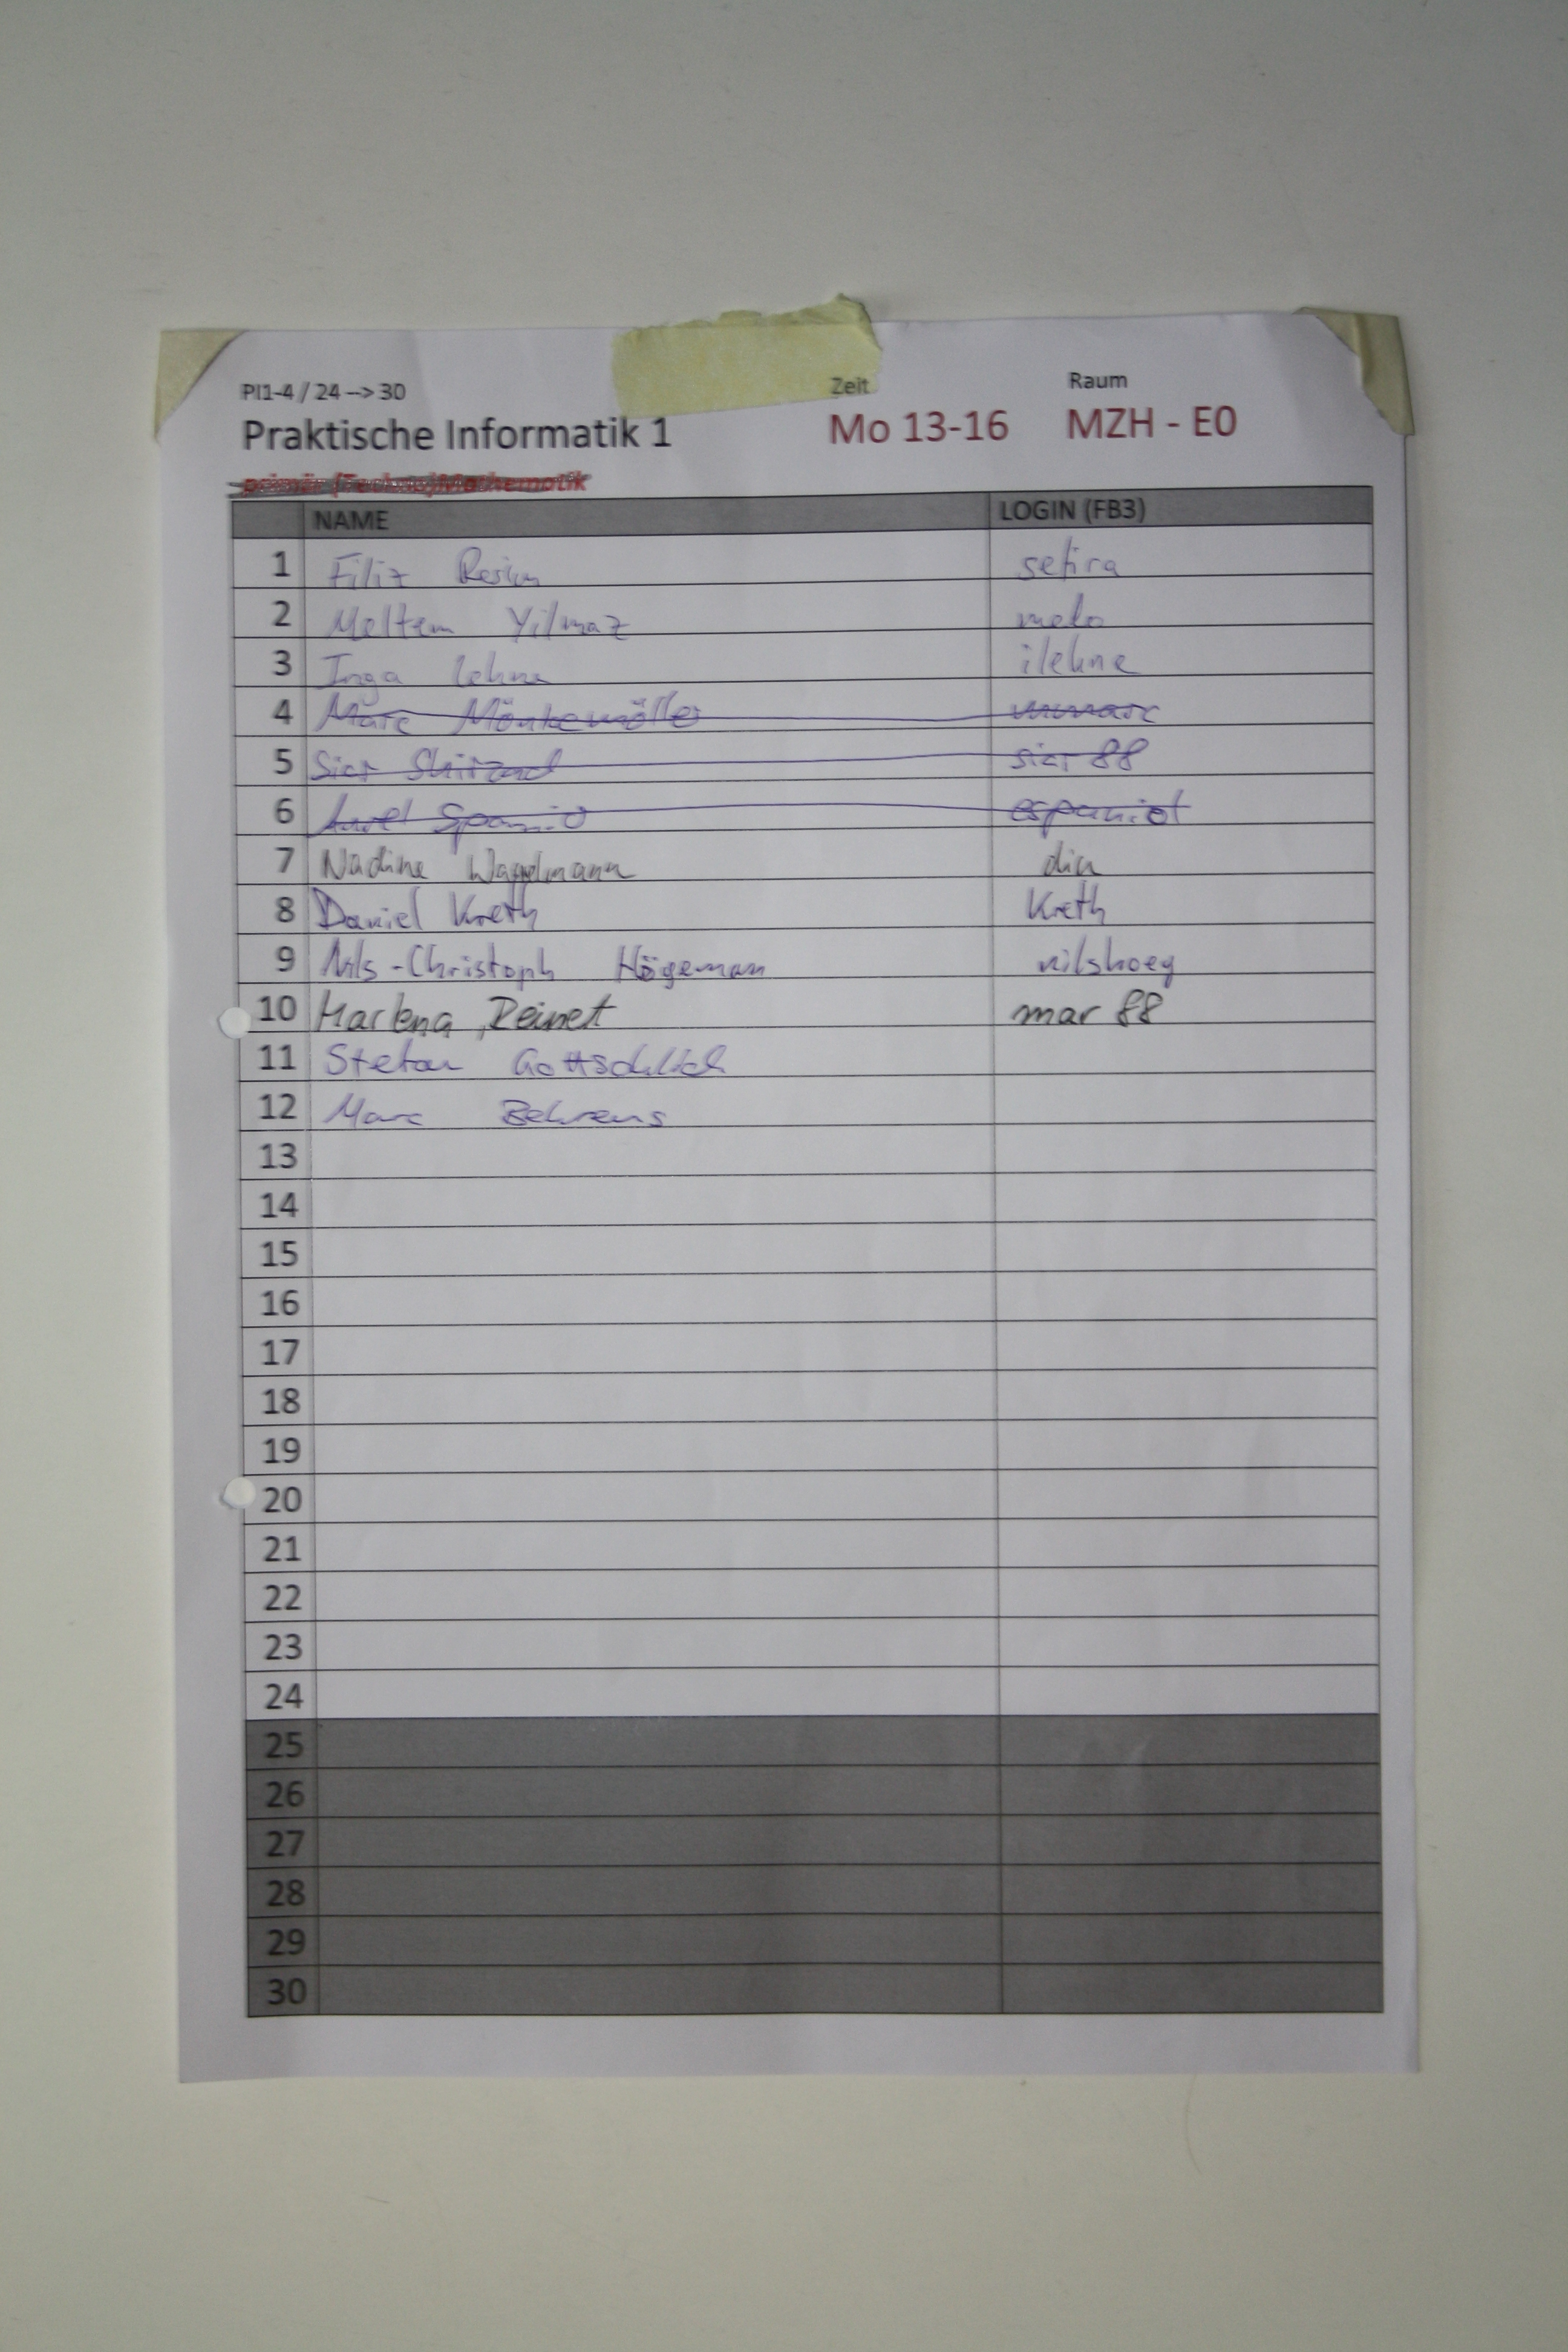 PI1-4 / 24 --> 30
Zeit Raum
Praktische Informatik 1 Mo 13-16 MZH - E0
primär (Techno)Mathematik
NAME LOGIN (FB3)
1 Filiz sefira
2 Meltem Yilmaz melo
3 Inga Lehne ilehne
4 Marc Mönkemöller mmarc
5 Siar Shirzad siar 88
6 espaniol
7 Nadine Wagelmann din
8 Daniel Kreth Kreth
9 Nils-Christoph Högeman nilshoeg
10 Marlena Reinet mar 88
11 Stefan Gottschlich
12 Marc Behrens
13
14
15
16
17
18
19
20
21
22
23
24
25
26
27
28
29
30